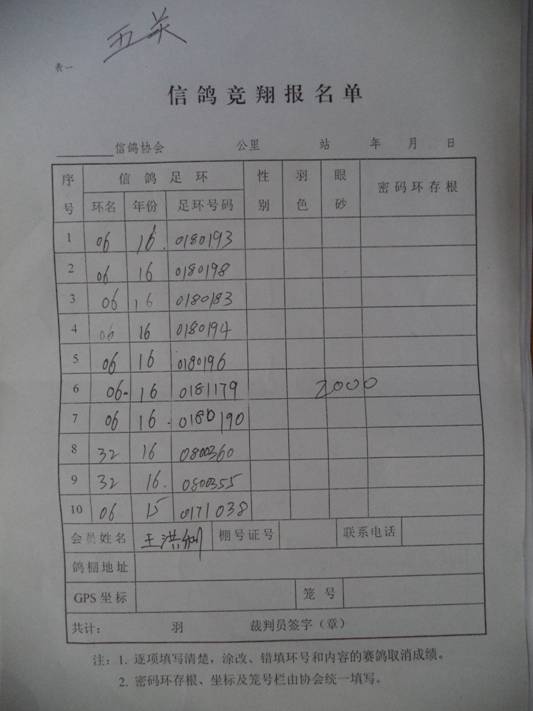 五关
表一
信鸽竞翔报名单
信鸽协会 公里 站 年 月 日
序号 信鸽足环 性别 羽色 眼砂 密码环存根
环名 年份 足环号码
1 06 16. 0180193
2 06 16 0180198
3 06 16 0180183
4 06 16 0180194
5 06 16 0180196
6 06. 16 0181179 2000
7 06 16. 0180190
8 32 16 0800360
9 32 16. 0800355
10 06 15 0171038
会员姓名 王洪 棚号证号 联系电话
鸽棚地址
GPS坐标 笼号
共计: 羽 裁判员签字(章)
注:1. 逐项填写清楚,涂改、错填环号和内容的赛鸽取消成绩。
2. 密码环存根、坐标及笼号栏由协会统一填写。